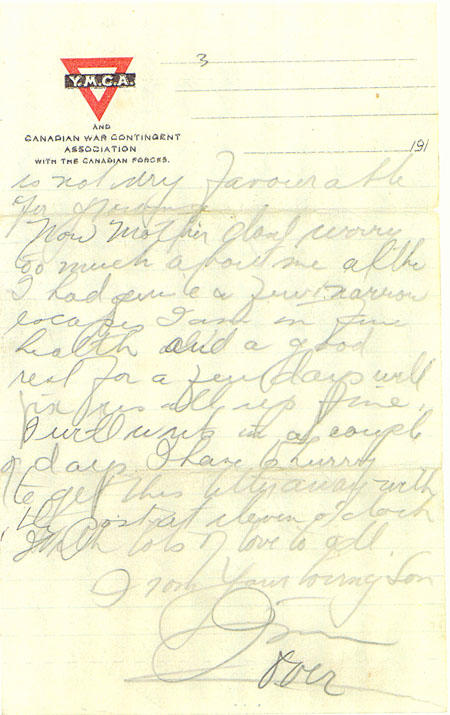 3
Y.M.C.A.
AND
CANADIAN WAR CONTINGENT
ASSOCIATION
WITH THE CANADIAN FORCES.
191
is not dry favourable
for
Now Mother dont worry
too much about me altho
I had quite a few narrow
escapes I am in fine
health and a good
rest for a few days will
fix us all up fine.
I will write in a couple
of days I have to hurry
to get this letter away with
the post at eleven o'clock
With lots of love to all.
From Your loving Son
Jim
over